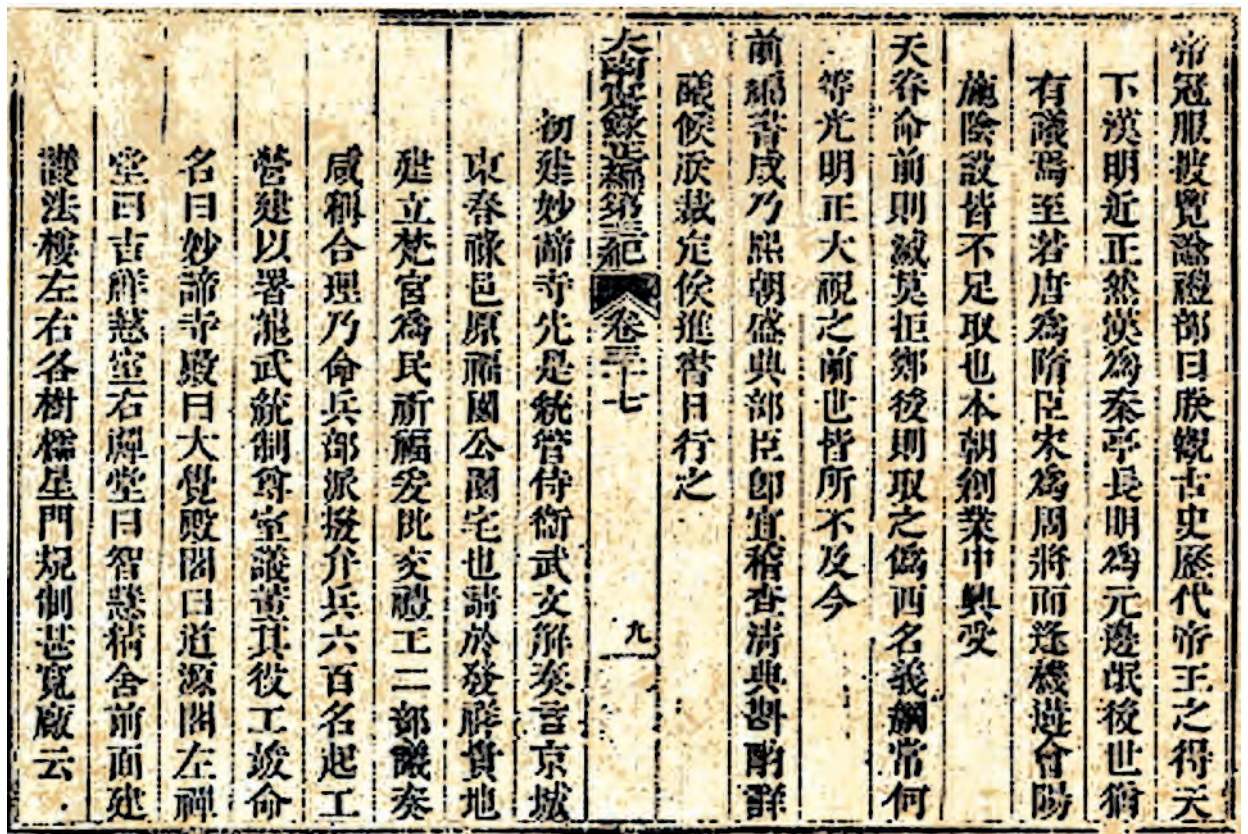 帝冠服披覽諭禮部曰朕觀古史歷代帝王之得天
下漢明近正然漢爲秦亭長明爲元邊氓後世猶
有議焉至若唐爲隋臣宋爲周將而逢機遘會陽
施陰設皆不足取也本朝創業中興受
天眷命前則滅莫拒鄭後則取之僞西名義綱常何
等光明正大視之前世皆所不及今
前編書成乃熙朝盛典部臣卽宜稽查清典斟酌詳
議候朕裁定俟進書日行之
大南寔錄正編第二紀 卷三十七 九
初建妙諦寺先是統管侍衛武文解奏言京城
東春祿邑原福國公園宅也請於發祥貴地
建立梵宮爲民祈福爰批交禮工二部議奏
咸稱合理乃命兵部派撥弁兵六百名起工
營建以署龍武統制尊室議董其役工竣命
名曰妙諦寺殿曰大覺殿閣曰道源閣左禪
堂曰吉祥慈室右禪堂曰智慧精舍前面建
護法樓左右各樹櫺星門規制甚寬敞云